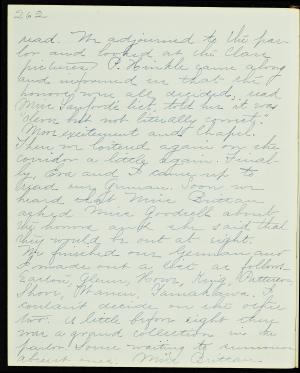 262
read. We adjourned to the par-
lor and looked at the Class
pictures. P. Hinkle came along
and informed us that the
honors were all decided, read
Miss Sanford's list, told us it was
"clever but not literally correct."
More excitement and Chapel.
Then we loitered again on the
corridor a little again. Final-
ly, Eva and I came up to
read our German. Soon we
heard that Miss Brittain
asked Miss Goodsell about
the honors and she said that
they would be out at eight.
We finished our German and
I made out a list as follows.
King, Patterson,
Shore,
couldn't decide on the other
two. A little before eight they
was a grand collection in the
parlor some waiting to
Miss Brittain